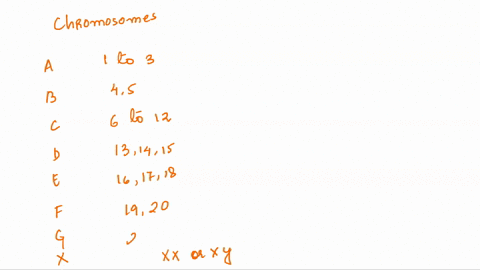 Chromosomes
A 1 to 3
B 4,5
C 6 to 12
D 13,14,15
E 16,17,18
F 19,20
G
X XX or xy